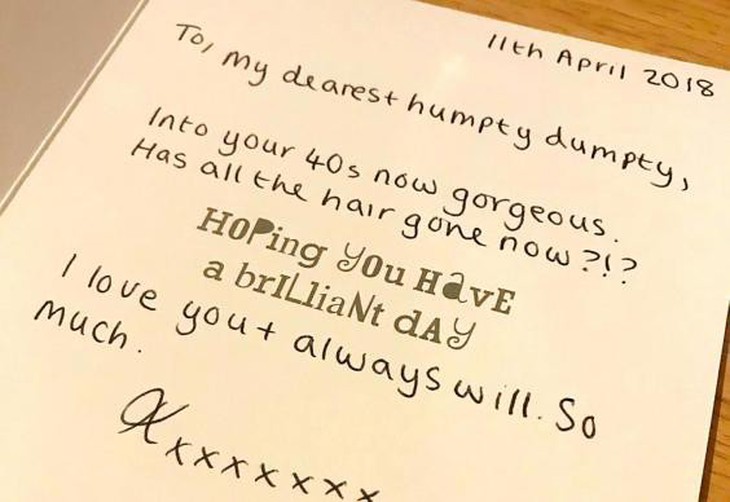 11th April 2018
To, my dearest humpty dumpty,
Into your 40s now gorgeous.
Has all the hair gone now?!?
HOPing yOu HavE
a brILliaNt dAy
I love you + always will. So
much.
Xxxxxxxx